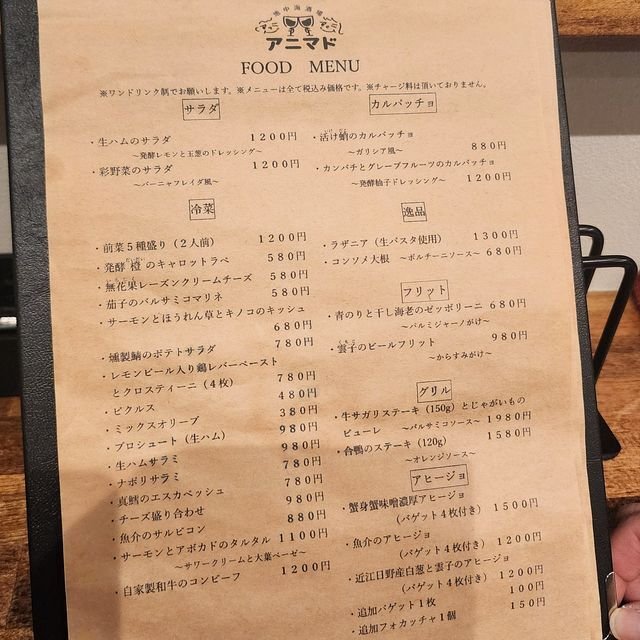 地中海酒場
アニマド
FOOD MENU
※ワンドリンク制でお願いします。※メニューは全て税込み価格です。※チャージ料は頂いておりません。
サラダ
・生ハムのサラダ 1200円
～発酵レモンと玉葱のドレッシング～
・彩野菜のサラダ 1200円
～バーニャフレイダ風～
冷菜
・前菜5種盛り（2人前） 1200円
・発酵橙のキャロットラペ 580円
・無花果レーズンクリームチーズ 580円
・茄子のバルサミコマリネ 580円
・サーモンとほうれん草とキノコのキッシュ
680円
・燻製鯖のポテトサラダ 780円
・レモンビール入り鶏レバーペースト
とクロスティーニ（4枚） 780円
・ピクルス 480円
・ミックスオリーブ 380円
・プロシュート（生ハム） 980円
・生ハムサラミ 980円
・ナポリサラミ 780円
・真鱈のエスカベッシュ 780円
・チーズ盛り合わせ 980円
・魚介のサルピコン 880円
・サーモンとアボカドのタルタル 1100円
～サワークリームと大葉ペーゼ～
・自家製和牛のコンビーフ 1200円
カルパッチョ
・活け蛸のカルパッチョ 880円
～ガリシア風～
・カンパチとグレープフルーツのカルパッチョ
～発酵柚子ドレッシング～ 1200円
逸品
・ラザニア（生パスタ使用） 1300円
・コンソメ大根 ～ポルチーニソース～ 680円
フリット
・青のりと干し海老のゼッポリーニ 680円
～パルミジャーノがけ～
・雲子のビールフリット 980円
～からすみがけ～
グリル
・牛サガリステーキ（150g）とじゃがいもの
ピューレ ～バルサミコソース～ 1980円
・合鴨のステーキ（120g） 1580円
～オレンジソース～
アヒージョ
・蟹身蟹味噌濃厚アヒージョ
（バゲット4枚付き） 1500円
・魚介のアヒージョ
（バゲット4枚付き） 1200円
・近江日野産白葱と雲子のアヒージョ
（バゲット4枚付き） 1200円
・追加バゲット1枚 100円
・追加フォカッチャ1個 150円